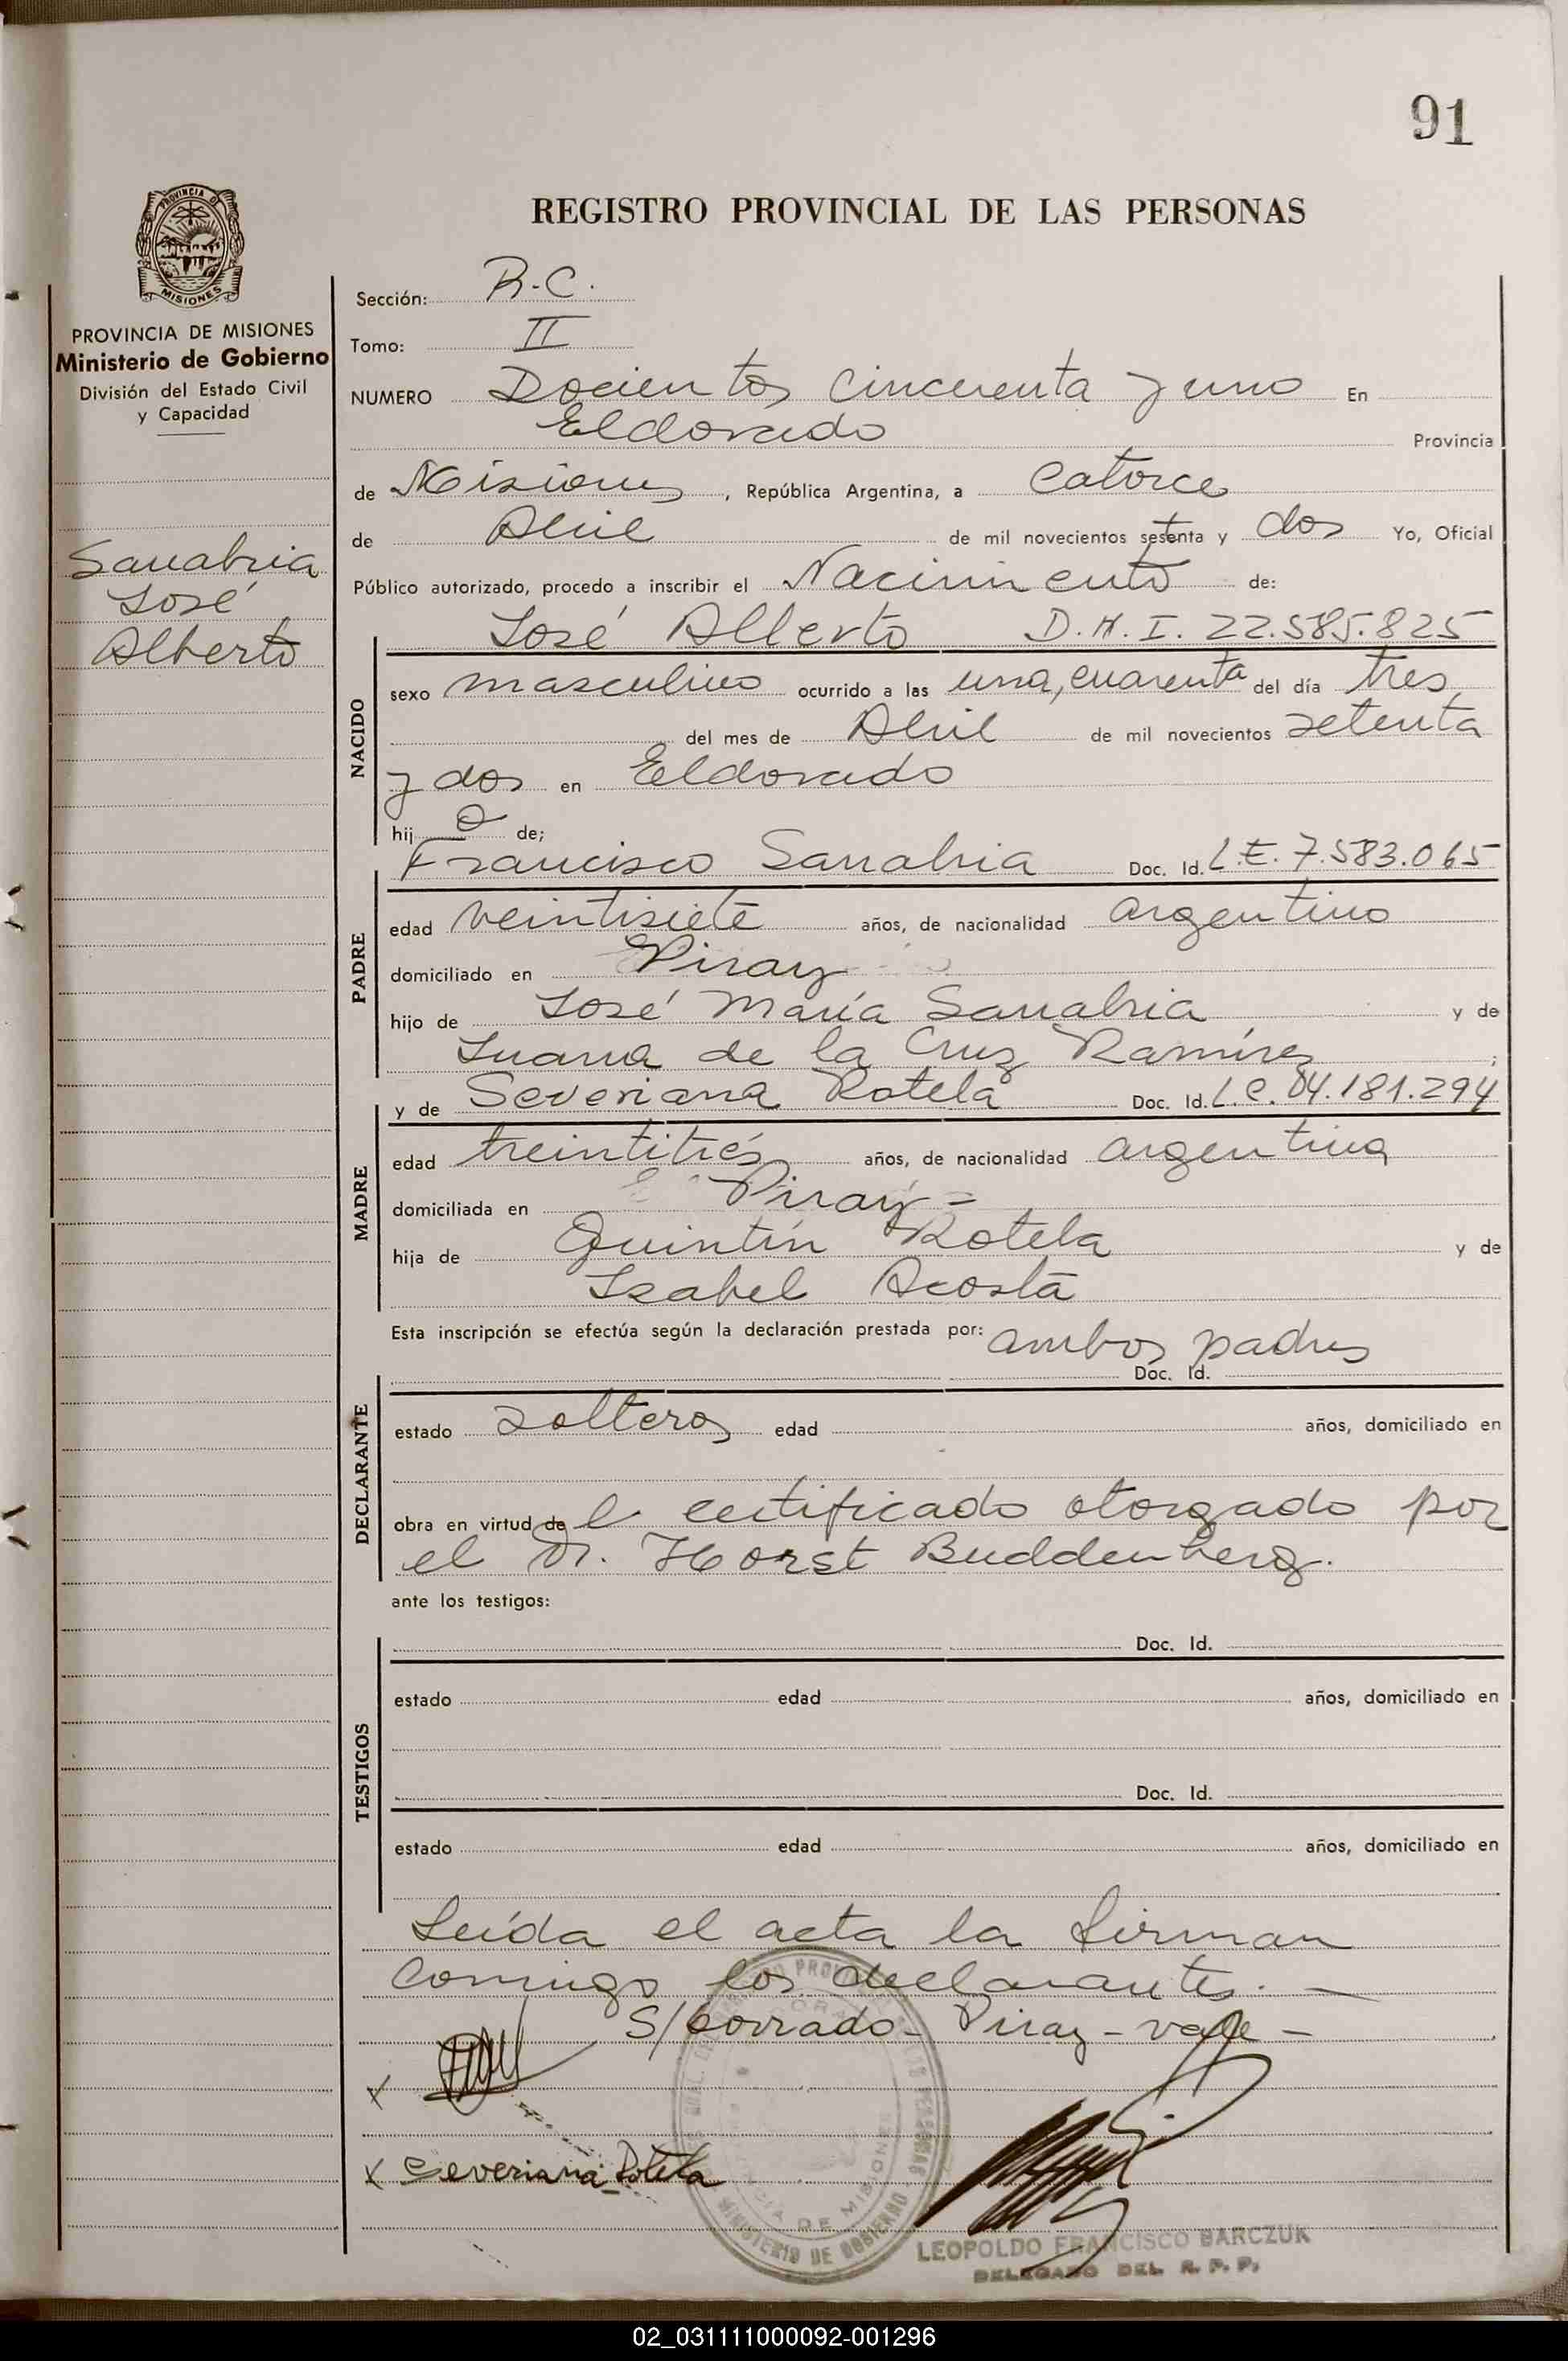 91
PROVINCIA DE
MISIONES
PROVINCIA DE MISIONES
Ministerio de Gobierno
División del Estado Civil
y Capacidad
Sanabria
José
Alberto
REGISTRO PROVINCIAL DE LAS PERSONAS
Sección: R.C.
Tomo: II
NUMERO Docientos Cincuenta y uno En
Eldorado Provincia
de Misiones, República Argentina, a Catorce
de Abril de mil novecientos setenta y dos Yo, Oficial
Público autorizado, procedo a inscribir el Nacimiento de:
José Alberto D.N.I. 22.585.825
NACIDO
sexo masculino ocurrido a las una, cuarenta del día tres
del mes de Abril de mil novecientos setenta
y dos en Eldorado
hij o de;
Francisco Sanabria Doc. Id. L.E. 7.583.065
PADRE
edad veintisiete años, de nacionalidad argentino
domiciliado en Piray
hijo de José María Sanabria y de
Juana de la Cruz Ramírez ;
y de Severiana Rotela Doc. Id. L.C. 04.181.294
MADRE
edad treintitrés años, de nacionalidad argentina
domiciliada en Piray =
hija de Quintín Rotela y de
Isabel Acosta
Esta inscripción se efectúa según la declaración prestada por: ambos padres
Doc. Id.
DECLARANTE
estado solteros edad años, domiciliado en
obra en virtud de l certificado otorgado por
el Dr. Horst Buddenberg.
ante los testigos:
Doc. Id.
TESTIGOS
estado edad años, domiciliado en
Doc. Id.
estado edad años, domiciliado en
Leída el acta la firman
comigo los declarantes. —
S/borrado - Piray - vale -
x
x Severiana Rotela
MINISTERIO DE GOBIERNO
DE MISIONES
LEOPOLDO FRANCISCO BARCZUK
DELEGADO DEL R. P. P.
02_031111000092-001296